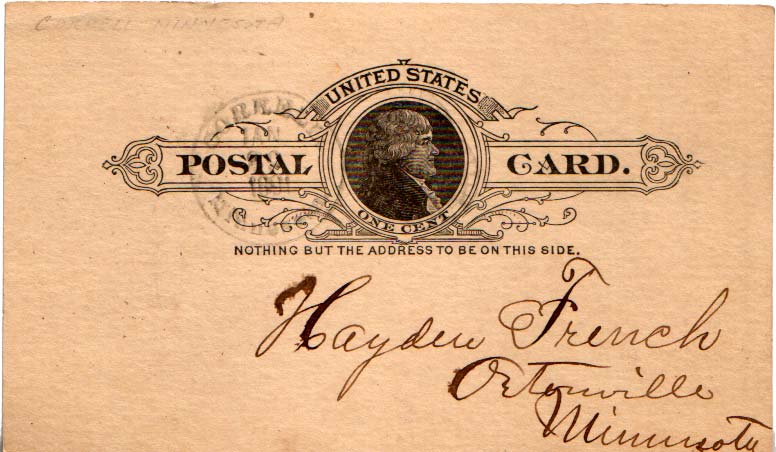 CORRELL MINNESOTA
UNITED STATES
POSTAL CARD.
ONE CENT
JAN
NOTHING BUT THE ADDRESS TO BE ON THIS SIDE.
Hayden French
Ortonville
Minnesota